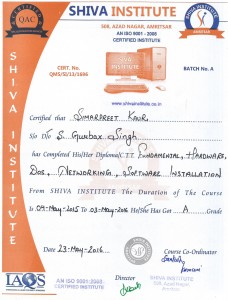 SHIVA INSTITUTE
508, AZAD NAGAR, AMRITSAR
AN ISO 9001 - 2008
CERTIFIED INSTITUTE
QAC
SHIVA INSTITUTE
CERT. NO.
QMS/SI/11/1696
BATCH NO. A
www.shivainstitute.co.in
SHIVA INSTITUTE
Certified that Simarpreet Kaur
S/o D/o S. Gurbax Singh
has Completed His/Her Diploma C.T.T. Fundamental, Hardware,
Dos, Networking, Software Installation
From SHIVA INSTITUTE The Duration of the Course
is 04-May-2015 to 03-May-2016 He/She Has Got A Grade
Date 23-May-2016
Course Co-Ordinator
Director
IAQS
AN ISO 9001:2008
CERTIFIED INSTITUTE